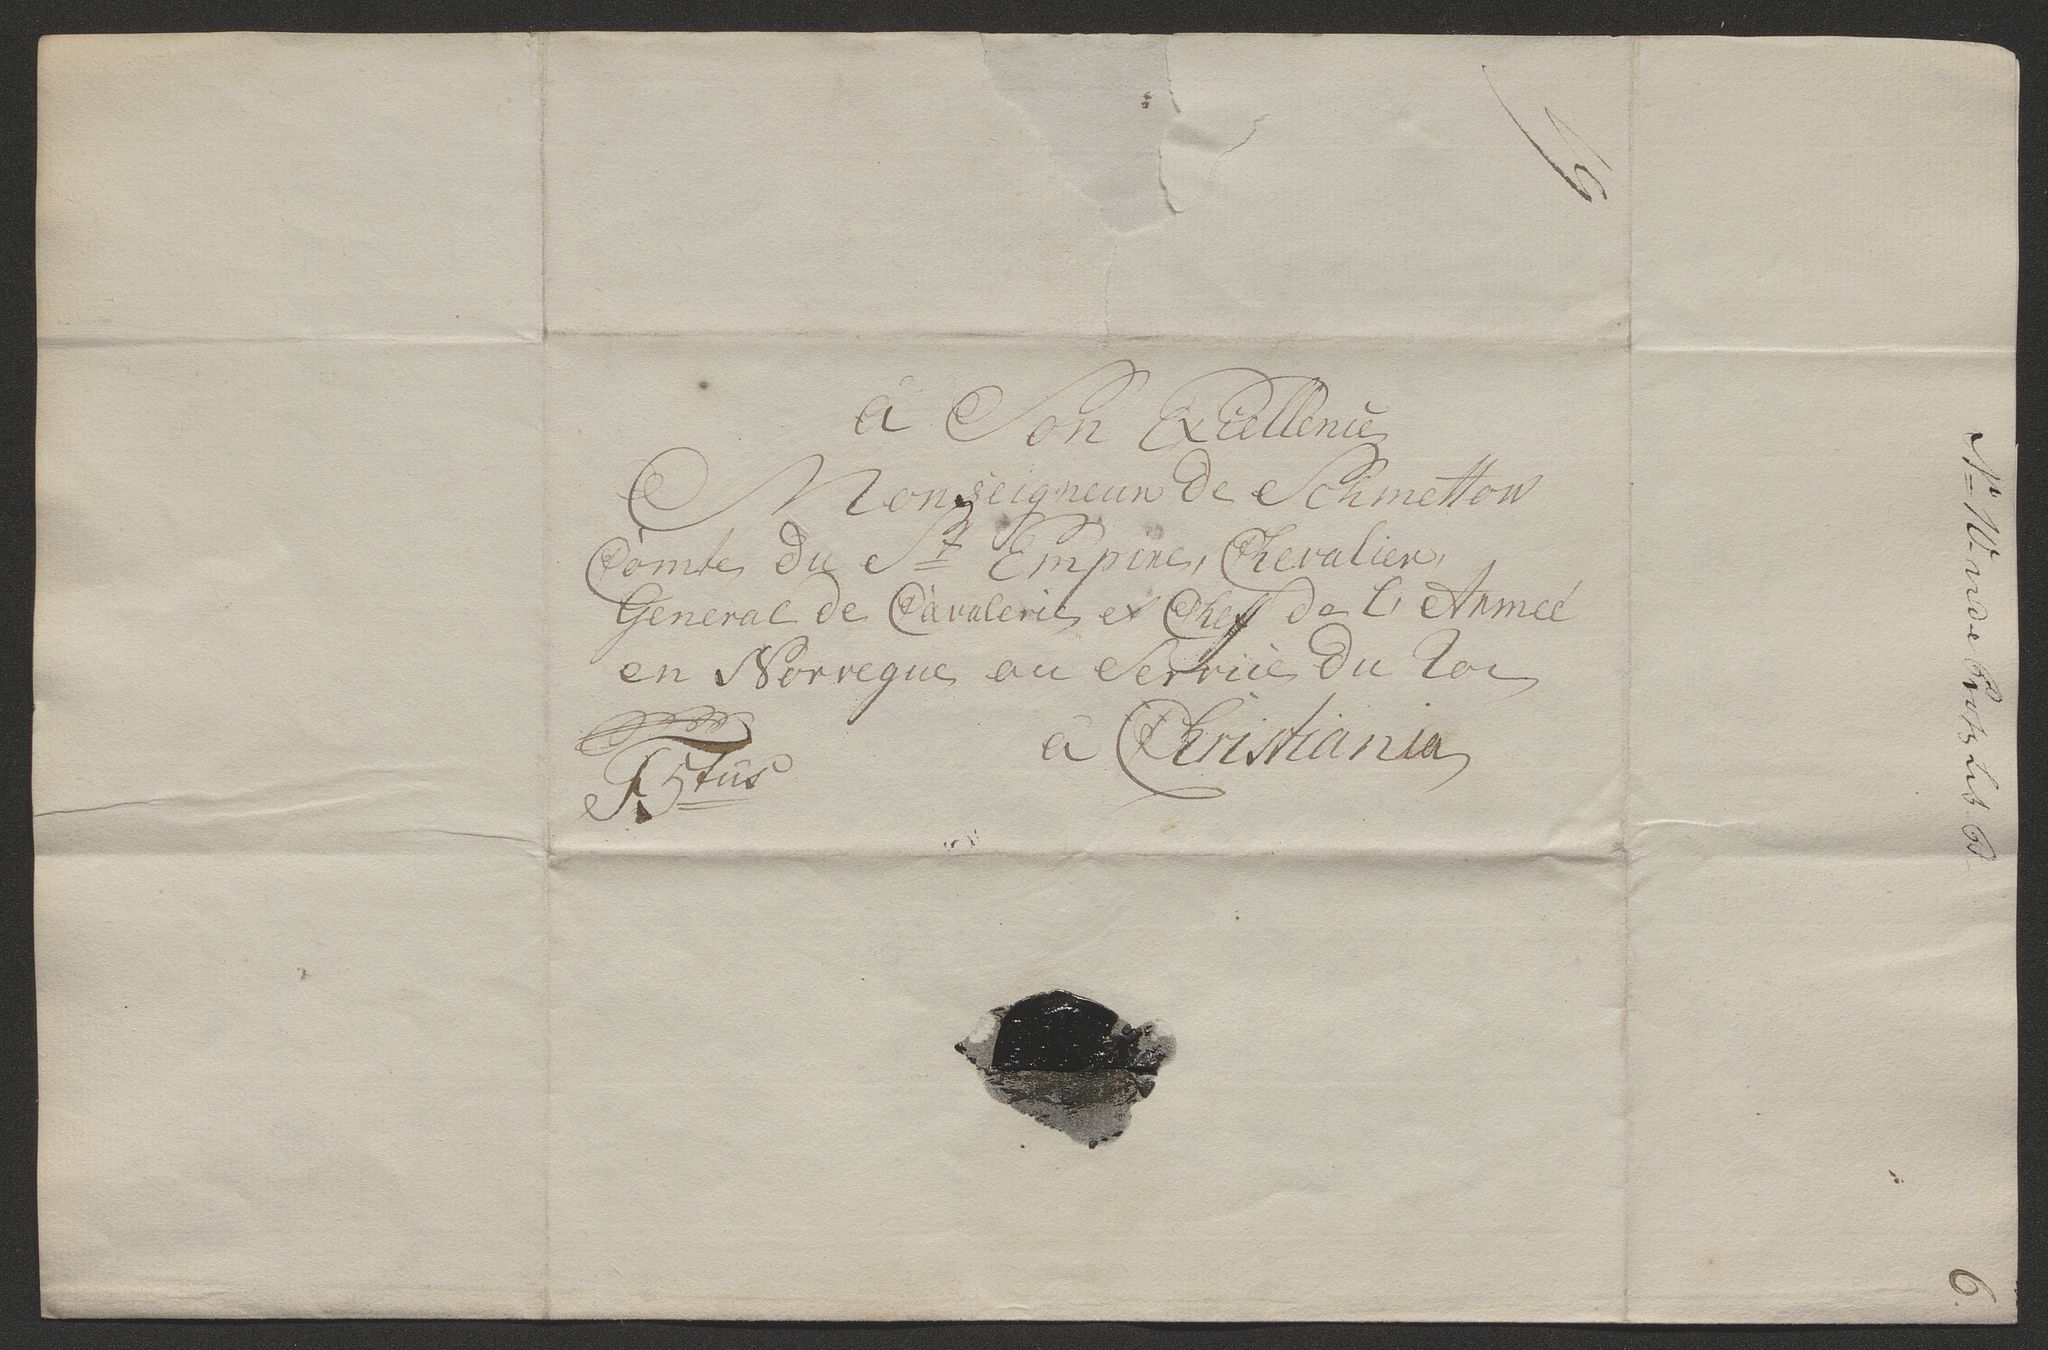 à Son Excellence
Monseigneur de Schmettow
Comte du St Empire, Chevalier,
General de Cavalerie et Cheff de L'Armeé
en Norvegue au Service du Roi
à Christiania
6